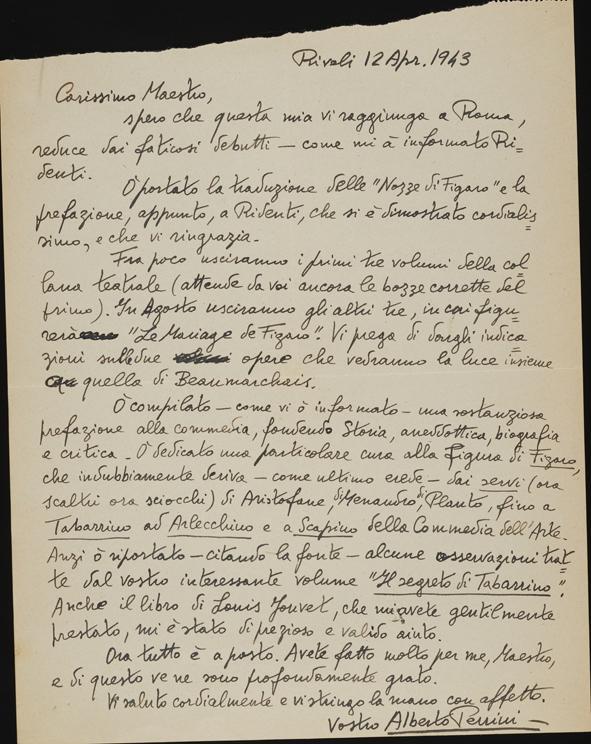 Rivoli 12 Apr. 1943
Carissimo Maestro,
spero che questa mia vi raggiunga a Roma,
reduce dai faticosi debutti — come mi à informato Ri=
denti.
Ò postato la traduzione delle "Nozze di Figaro" e la
prefazione, appunto, a Ridenti, che si è dimostrato cordialis=
simo, e che vi ringrazia.
Fra poco usciranno i primi tre volumi della col=
lana teatrale (attende da voi ancora le bozze corrette del
primo). In Agosto usciranno gli altri tre, in cui figu=
rerà "Le Mariage de Figaro". Vi prega di dargli indica=
zioni sulle due opere che vedranno la luce insieme
a quella di Beaumarchais.
Ò compilato — come vi ò informato — una sostanziosa
prefazione alla commedia, fondendo Storia, aneddottica, biografia
e critica. Ò dedicato una particolare cura alla figura di Figaro,
che indubbiamente deriva — come ultimo erede — dai servi (ora
scaltri ora sciocchi) di Aristofane, di Menandro, di Plauto, fino a
Tabarrino ad Arlecchino e a Scapino della Commedia dell'Arte.
Anzi ò riportato — citando la fonte — alcune osservazioni trat=
te dal vostro interessante volume "Il segreto di Tabarrino".
Anche il libro di Louis Jouvet, che mi avete gentilmente
prestato, mi è stato di prezioso e valido aiuto.
Ora tutto è a posto. Avete fatto molto per me, Maestro,
e di questo ve ne sono profondamente grato.
Vi saluto cordialmente e vi stringo la mano con affetto.
Vostro Alberto Perrini —